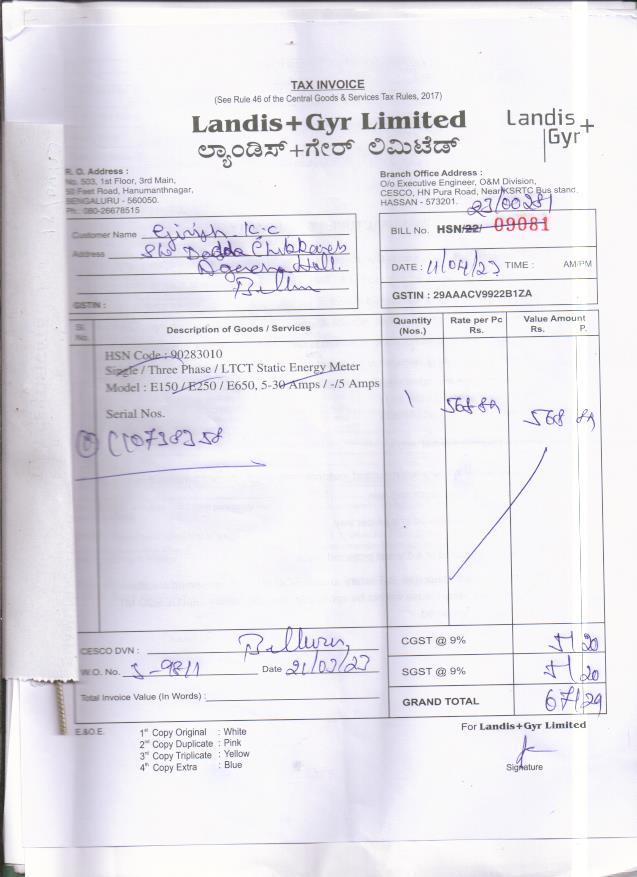 TAX INVOICE
(See Rule 46 of the Central Goods & Services Tax Rules, 2017)
Landis+Gyr Limited
ಲ್ಯಾಂಡಿಸ್+ಗೇರ್ ಲಿಮಿಟೆಡ್
Landis+
Gyr
R. O. Address :
No. 503, 1st Floor, 3rd Main,
Feet Road, Hanumanthnagar,
BENGALURU - 560050.
Ph.: 080-26678515
Branch Office Address :
O/o Executive Engineer, O&M Division,
CESCO, HN Pura Road, Near KSRTC Bus stand.
HASSAN - 573201.
23/00281
Customer Name Girish K.C
Address S/o Dodda
BILL No. HSN/22/ 09081
DATE : 11/04/23 TIME : AM/PM
GSTIN :
GSTIN : 29AAACV9922B1ZA
Sl. No. Description of Goods / Services Quantity (Nos.) Rate per Pc Rs. Value Amount Rs. P.
HSN Code : 90283010
Single / Three Phase / LTCT Static Energy Meter
Model : E150 / E250 / E650, 5-30 Amps / -/5 Amps
1 568 89 568 89
Serial Nos.
CESCO DVN :
CGST @ 9% 51 20
W.O. No. Date 21/03/23
SGST @ 9% 51 20
Total Invoice Value (In Words) :
GRAND TOTAL 671 29
E.&O.E.
1st Copy Original : White
2nd Copy Duplicate : Pink
3rd Copy Triplicate : Yellow
4th Copy Extra : Blue
For Landis+Gyr Limited
Signature